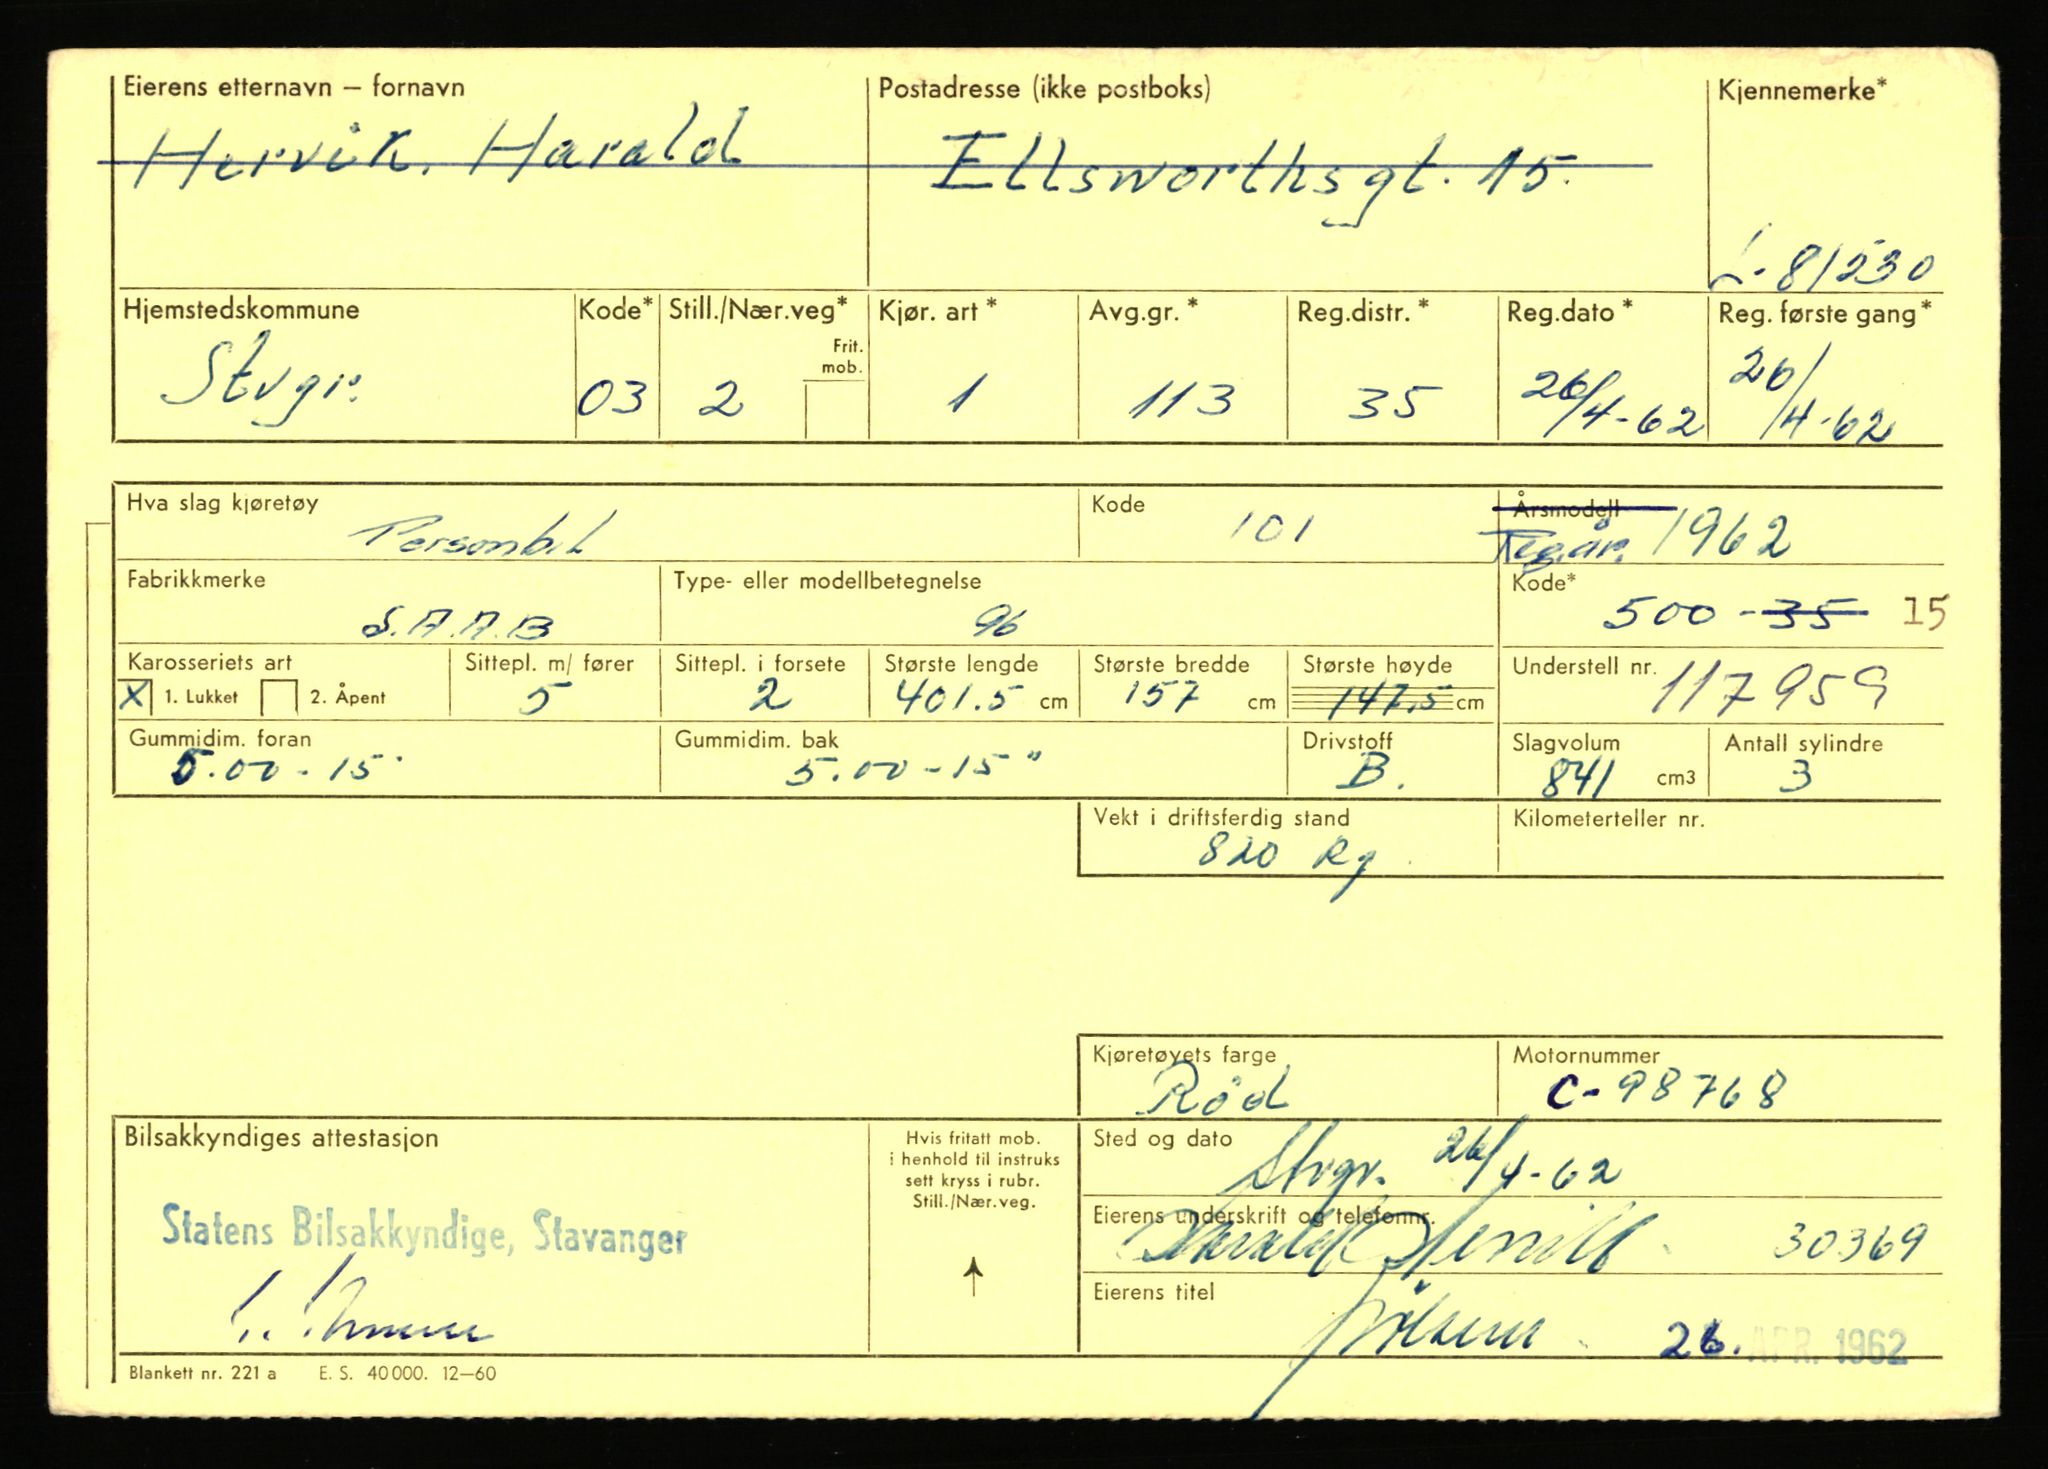 Eierens etternavn – fornavn
Postadresse (ikke postboks)
Kjennemerke*
Hervik, Harald
Ellsworthsgt. 15.
L-81230
Hjemstedskommune
Kode*
Still./Nær.veg*
Frit. mob.
Kjør. art*
Avg.gr.*
Reg.distr.*
Reg.dato*
Reg. første gang*
Stvgr.
03
2
1
113
35
26/4-62
26/4-62
Hva slag kjøretøy
Kode
Årsmodell
Personbil
101
Reg.år. 1962
Fabrikkmerke
Type- eller modellbetegnelse
Kode*
S.A.A.B
96
500-35 15
Karosseriets art
Sittepl. m/ fører
Sittepl. i forsete
Største lengde
Største bredde
Største høyde
Understell nr.
X 1. Lukket
2. Åpent
5
2
401.5 cm
157 cm
147,5 cm
117959
Gummidim. foran
Gummidim. bak
Drivstoff
Slagvolum
Antall sylindre
5.00-15"
5.00-15"
B.
841 cm3
3
Vekt i driftsferdig stand
Kilometerteller nr.
820 kg
Kjøretøyets farge
Motornummer
Rød
C-98768
Bilsakkyndiges attestasjon
Hvis fritatt mob.
i henhold til instruks
sett kryss i rubr.
Still./Nær.veg.
Sted og dato
Stvgr. 26/4-62
Statens Bilsakkyndige, Stavanger
Eierens underskrift og telefonnr.
Harald Hervik
30369
Eierens titel
26. APR. 1962
Blankett nr. 221 a E. S. 40 000. 12–60